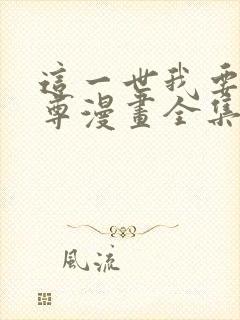 這一世我要
尊漫畫全集
風流